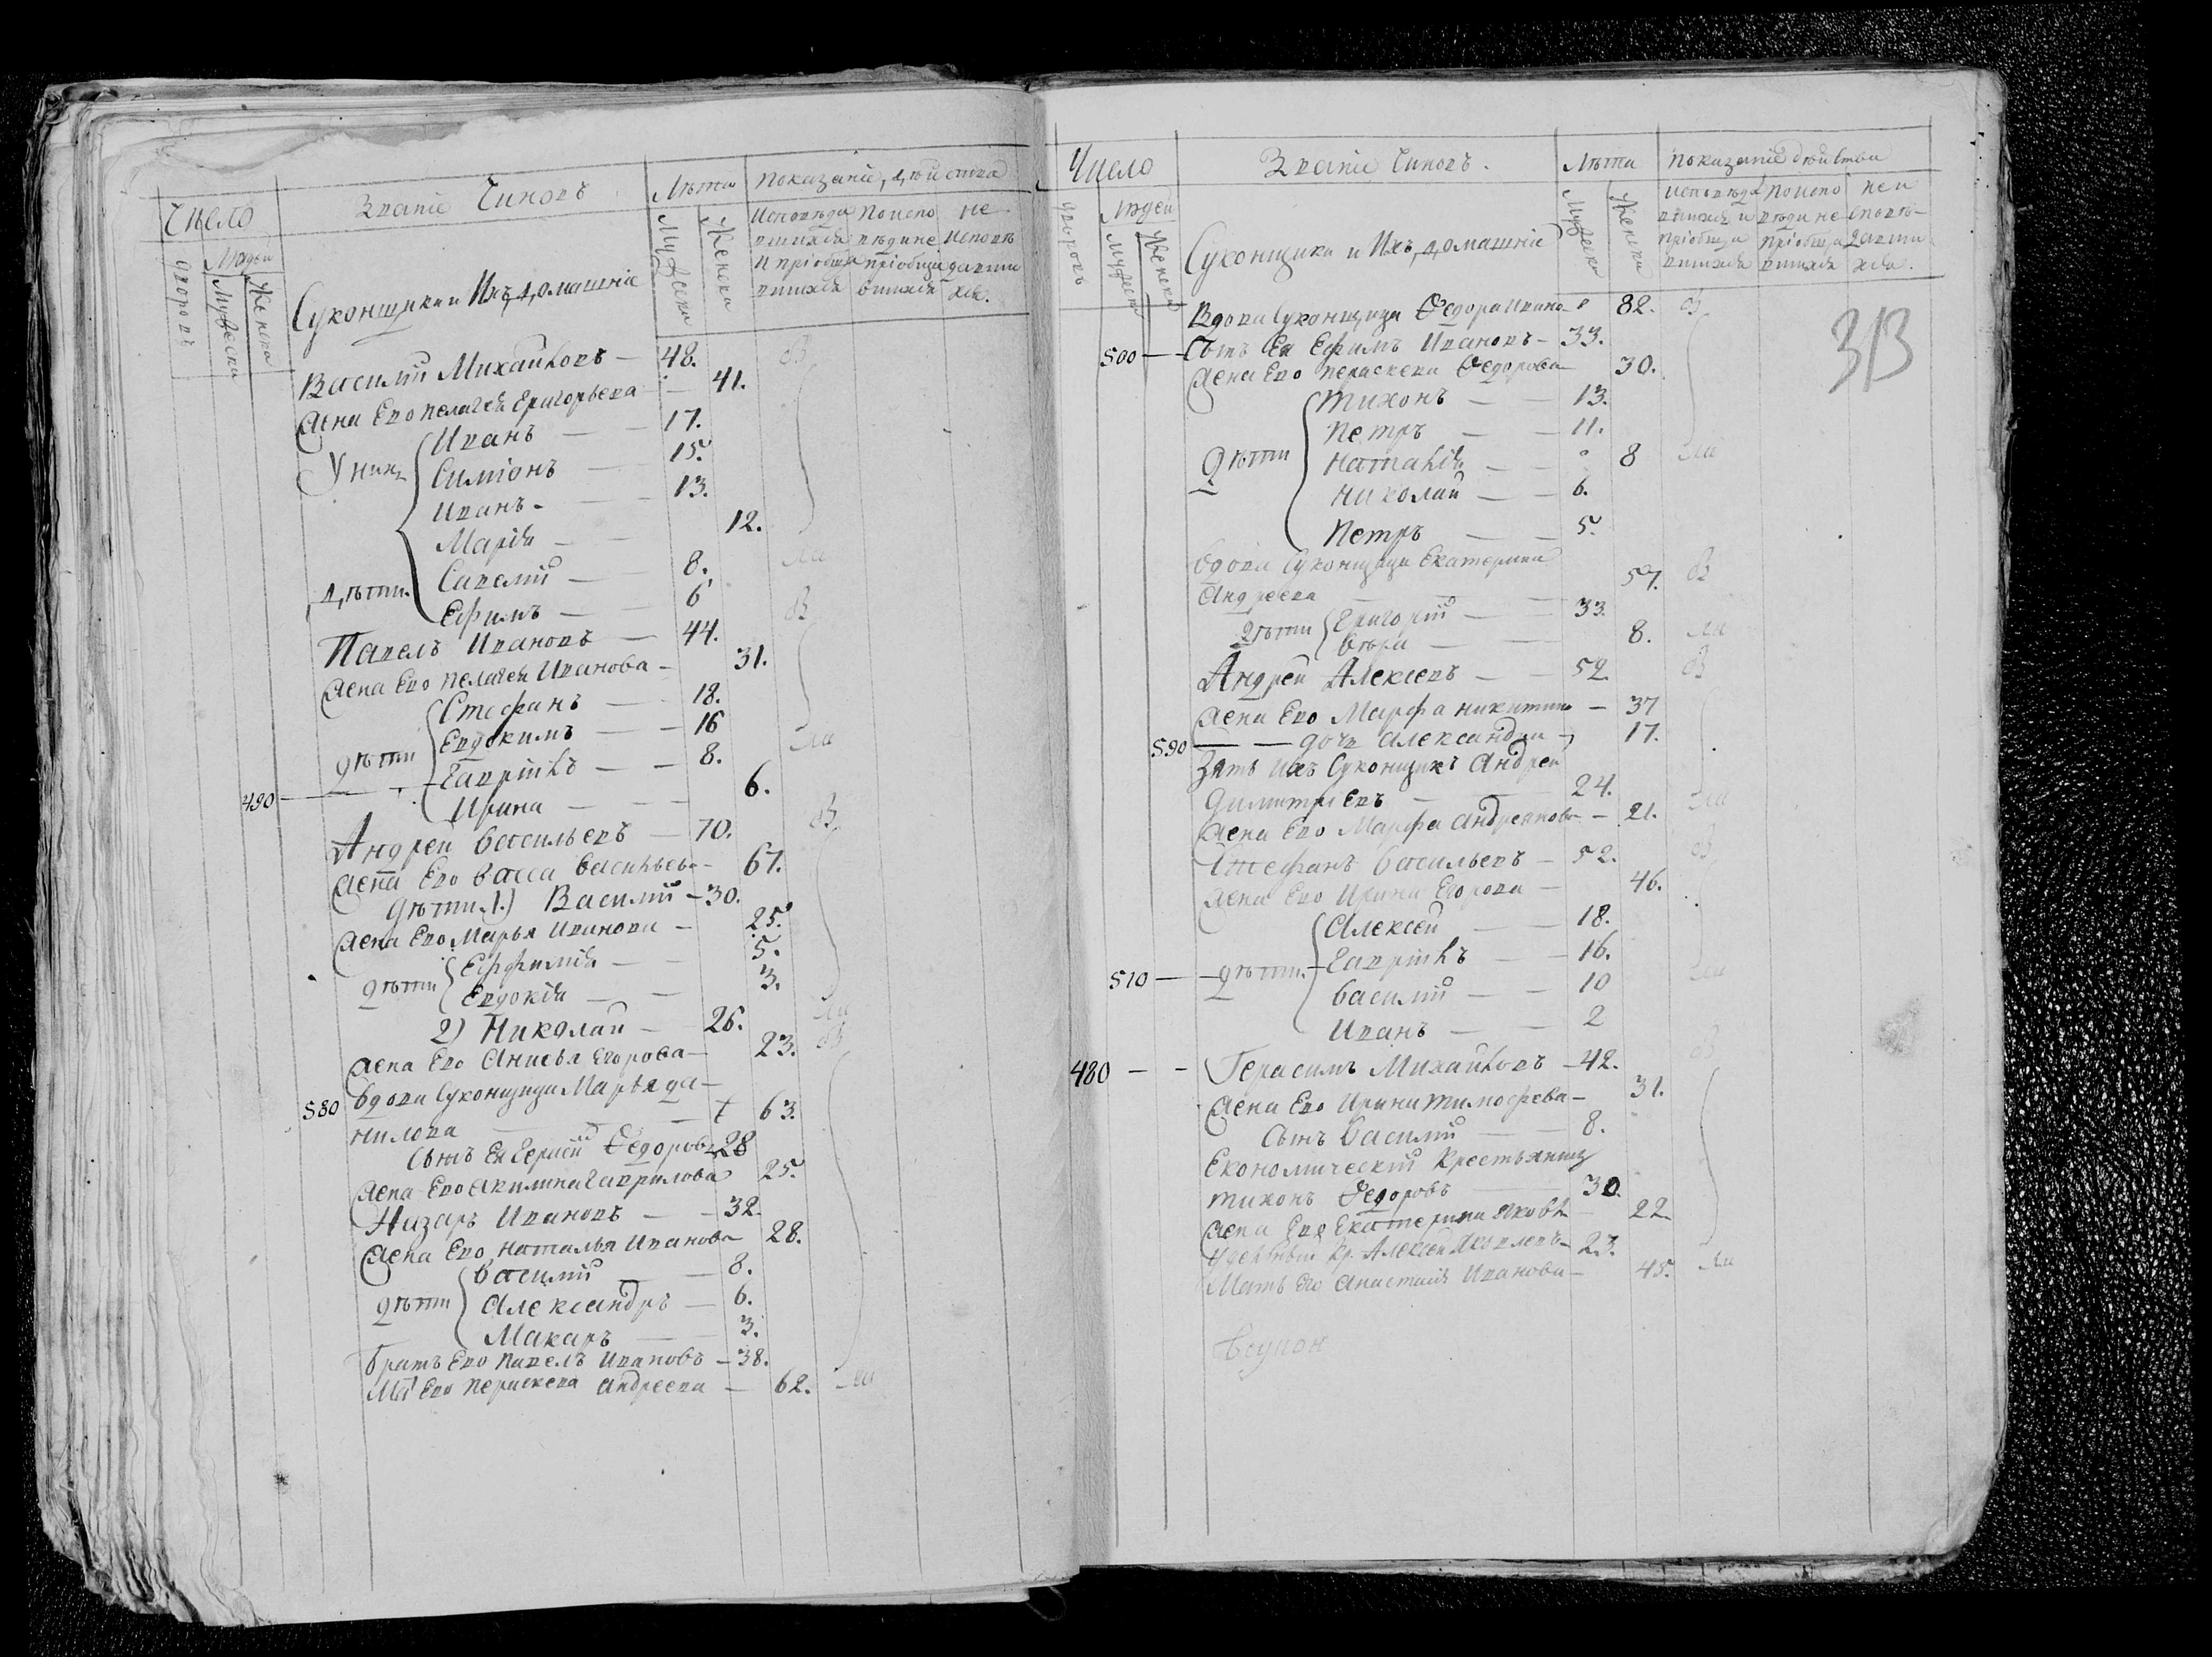 Число
Званіе Чиновъ
Лѣта
Показаніе, дѣйства
дворовъ
Людей
Мужеска
Женска
Мужеска
Женска
Исповѣда
вшихся
и пріобща
вшихся
По испо
вѣди не
пріобща
вшихся
не
исповѣ
давши
хся.
Суконщики и Ихъ, домашніе
Василій Михайловъ — 48.
Жена Ево Пелагея Григорьева — 41.
У них
Иванъ — 17.
Симіонъ — 15.
Иванъ — 13.
Марія — 12.
дѣти. Савелій — 8.
Ефимъ — 6
Павелъ Ивановъ — 44.
Жена Ево Пелагея Иванова — 31.
Стефанъ — 18.
Евдокимъ — 16
дѣти
490 — Гаврилъ — 8.
Ирина — 6.
Андрей Васильевъ — 70.
Жена Ево Васса Васильева — 67.
дѣти. 1.) Василий — 30.
Жена Ево Марья Иванова — 25.
дѣти Ефимія — 5.
Евдокія — 3.
2) Николай — 26.
Жена Ево Анисья Егорова — 23.
580 Вдова Суконщица Марья Да-
нилова — 63.
Сынъ Ея Сергѣй Федоровъ 28
Жена Ево Акилина Гаврилова 25.
Назаръ Ивановъ — 32.
Жена Ево Наталья Иванова 28.
Василий — 8.
дѣти Александръ — 6.
Макаръ — 3.
Братъ Ево Павелъ Ивановъ — 38.
Мать Ево Перасковья Андреева — 62.
Число
Званіе Чиновъ.
Лѣта
Показаніе дѣйства
дворовъ
Людей
Мужеска
Женска
Мужеска
Женска
Исповѣда
вшихся и
пріобща
вшихся
По испо
вѣди не
пріобща
вшихся
не и
сповѣ-
давши
хся.
Суконщики и Ихъ, домашніе
313
Вдова Суконщица Федора Ивано 82.
500 — Сынъ Ея Ефимъ Ивановъ — 33.
Жена Ево Параскева Федорова 30.
Тихонъ — 13.
Петръ — 11.
Дѣти Наталія — 8
Николай — 6.
Петръ — 5.
Вдова Суконщица Екатерина
Андреева — 57.
Дѣти Григорій — 33.
Вѣра — 8.
Андрей Алексеевъ — 52.
Жена Ево Марфа Никитина — 37
590 — дочь Александра — 17.
Зять Ихъ Суконщикъ Андрей
Димитріевъ — 24.
Жена Ево Марфа Андреянова — 21.
Стефанъ Васильевъ — 52.
Жена Ево Ирина Егорова — 46.
Алексей — 18.
510 — дѣти. Гаврилъ — 16.
Василий — 10
Иванъ — 2
480 — Герасимъ Михайловъ — 42.
Жена Ево Ирина Тимофева — 31.
Сынъ Василий — 8.
Економический Крестьянинъ
Тихонъ Федоровъ — 30.
Жена Ево Екатерина Яковл 22
Удельный Кр. Алексей Яковлевъ — 23.
Мать Его Анастасія Иванова — 45.